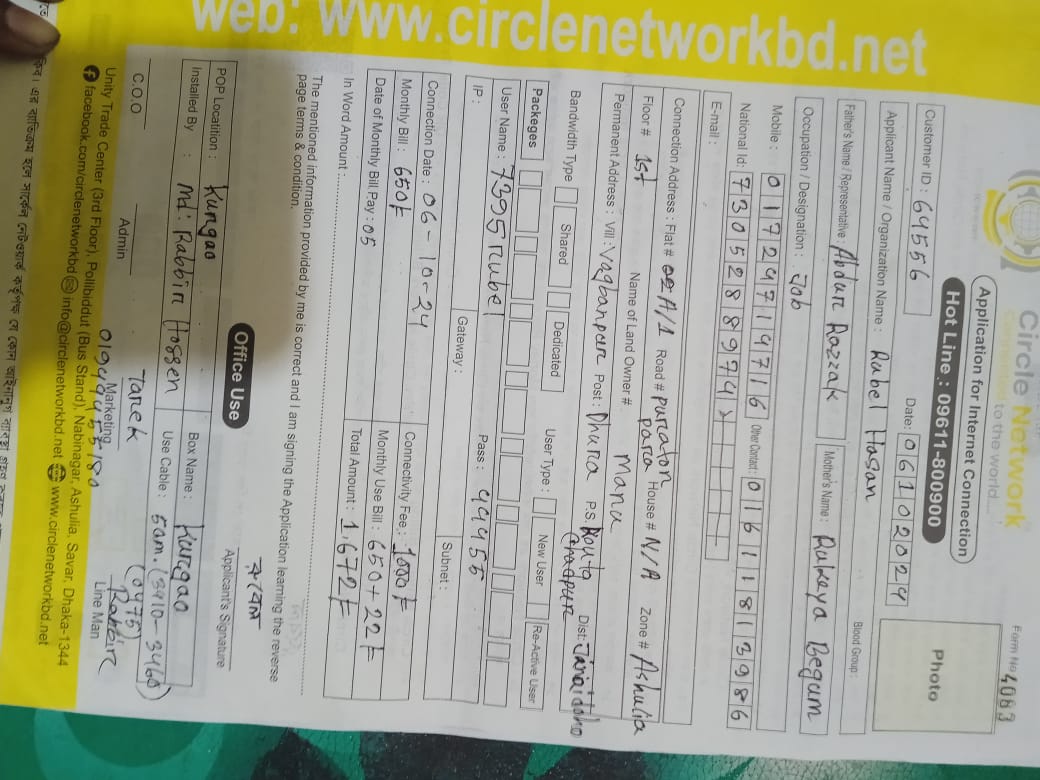 Circle Network
Connected to the world...
Form No 4083
Application for Internet Connection
Hot Line : 09611-800900
Photo
Customer ID : 64556
Date: 06102024
Applicant Name / Organization Name : Rubel Hasan
Father's Name / Representative : Abdur Razzak
Mother's Name : Rukeya Begum
Blood Group :
Occupation / Designation : Job
Mobile : 01724971971 6
Other Contact : 01611813986
National Id: 7305288974
E-mail :
Connection Address : Flat # A/1 Road # puraton para House # N/A Zone # Ashulia
Floor # 1st Name of Land Owner # Mana
Permanent Address : Vill : Vagbanpar Post : Dhura P.S Dist:
Bandwidth Type Shared Dedicated User Type : New User Re-Active User
Packeges
User Name : 7395rubel Pass : 44455
IP : Gateway : Subnet :
Connection Date : 06-10-24 Connectivity Fee : 1000৳
Monthly Bill : 650৳ Monthly Use Bill : 650+22৳
Date of Monthly Bill Pay : 05 Total Amount : 1,672৳
In Word Amount :
The mentioned information provided by me is correct and I am signing the Application learning the reverse
page terms & condition.
Applicant's Signature
Office Use
POP Locatition : Kungao Box Name : Kungao
Installed By : md: Rabbir Hossen Use Cable : 5am. (3910-3460)
(0475)
Tarek Rabbir
C.O.O Admin Marketing Line Man
01944455180
Unity Trade Center (3rd Floor), Pollibiddut (Bus Stand), Nabinagar, Ashulia, Savar, Dhaka-1344
facebook.com/circlenetworkbd info@circlenetworkbd.net www.circlenetworkbd.net
web: www.circlenetworkbd.net